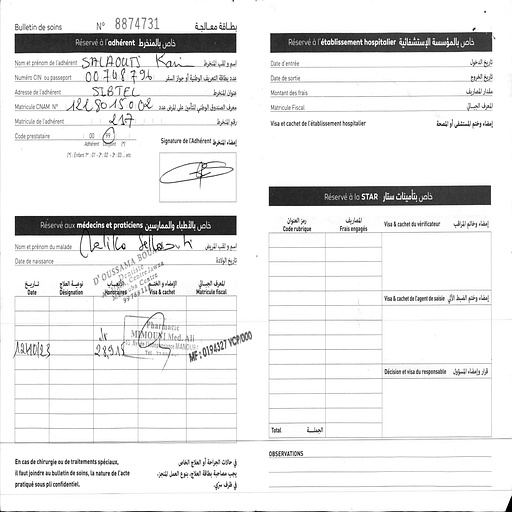 Bulletin de soins N° 8874731 بطاقة معالجة
Réservé à l'adhérent خاص بالمنخرط
Nom et prénom de l'adhérent SALAOUTI Karim إسم و لقب المنخرط
Numéro CIN ou passeport 00748796 عدد بطاقة التعريف الوطنية أو جواز السفر
Adresse de l'adhérent SIBTEL عنوان المنخرط
Matricule CNAM N° 1225015002 معرف الصندوق الوطني للتأمين على المرض عدد
Matricule de l'adhérent 217 رقم المنخرط
Code prestataire 00 99
Adhérent Conjoint (*)
(*) : Enfant 1er : 01 - 2 : 02 - 3 : 03 ... etc
Signature de l'Adhérent إمضاء المنخرط
Réservé aux médecins et praticiens خاص بالأطباء والممارسين
Nom et prénom du malade Malika إسم و لقب المريض
Date de naissance تاريخ الولادة
تاريخ نوعية العلاج الأتعاب الإمضاء و الختم المعرف الجبائي
Date Désignation Honoraires Visa & cachet Matricule fiscal
D'OUSSAMA
Dentiste
12/10/23 28,915
Pharmacie
MIMOUNI Med. Ali
MF: 0194327 Y/CP/000
En cas de chirurgie ou de traitements spéciaux,
il faut joindre au bulletin de soins, la nature de l'acte
pratiqué sous pli confidentiel.
في حالات الجراحة أو العلاج الخاص
يجب مصاحبة بطاقة العلاج، بنوع العمل المنجز،
في ظرف سري.
Réservé à l'établissement hospitalier خاص بالمؤسسة الإستشفائية
Date d'entrée تاريخ الدخول
Date de sortie تاريخ الخروج
Montant des frais مقدار المصاريف
Matricule Fiscal المعرف الجبائي
Visa et cachet de l'établissement hospitalier إمضاء وختم المستشفى أو المصحة
Réservé à la STAR خاص بتأمينات ستار
رمز العنوان المصاريف
Code rubrique Frais engagés
Visa & cachet du vérificateur إمضاء وخاتم المراقب
Visa & cachet de l'agent de saisie إمضاء وختم الضبط الآلي
Décision et visa du responsable قرار وإمضاء المسؤول
Total الجملة
OBSERVATIONS